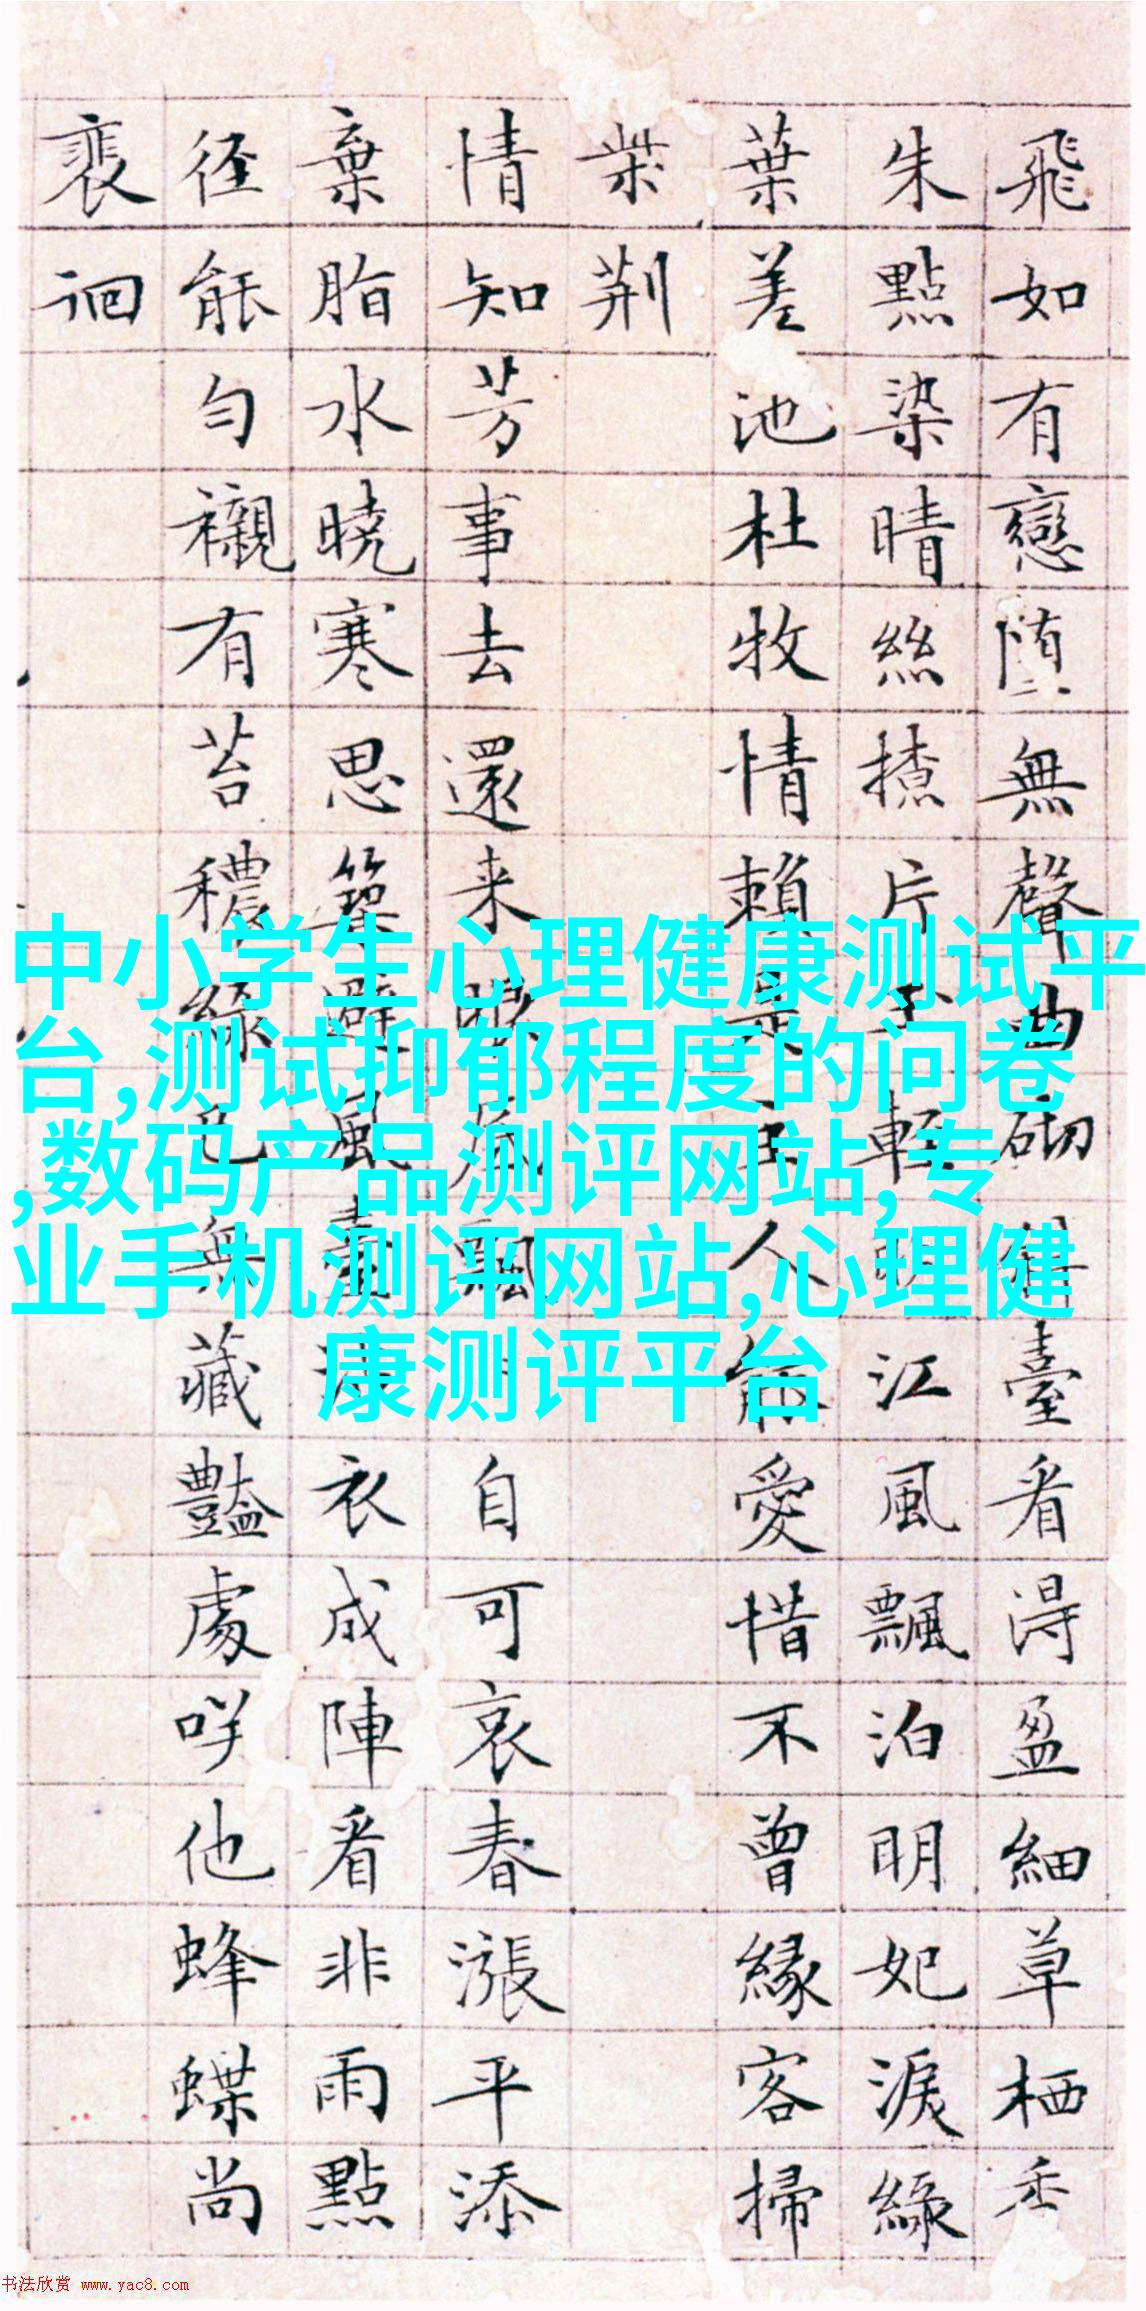 飛如有戀堕無聲曲砌臺看得盈細草栖香
朱點染晴絲撩片輕江風飄泊明妃淚綠
葉差池杜牧情賴是主人能愛惜不曾緣客掃
柴荆
情知芳事去還来眼底飄自可哀春漲平添
棄脂水曉寒思築避風臺衣成陣看非雨點
径能勻襯有苔穠綠色無藏豔處咲他蜂蝶尚
裵徊
中小学生心理健康测试平
台,测试抑郁程度的问卷
,数码产品测评网站,专
业手机测评网站,心理健
康测评平台
书法欣赏 www.yac8.com